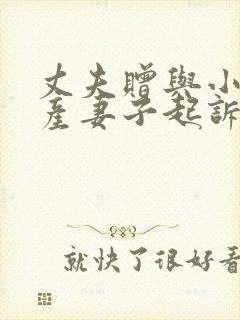 丈夫贈與小
產妻子起訴
就快了很好看